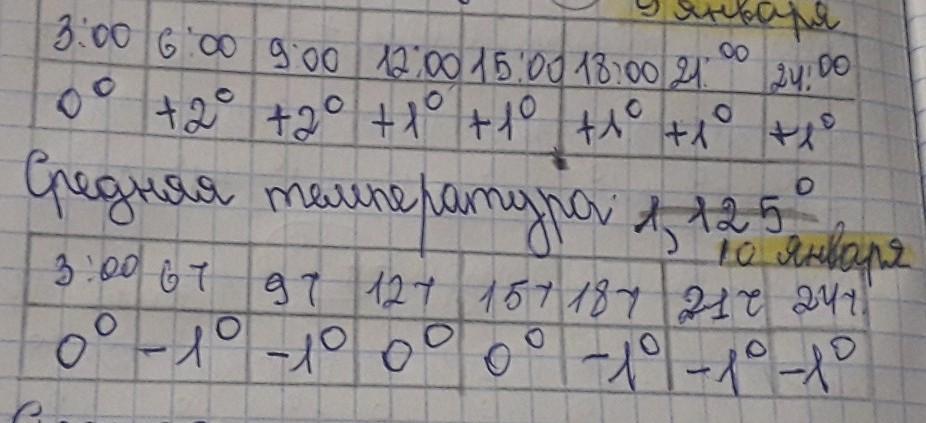 9 января
3:00 6:00 9:00 12:00 15:00 18:00 21:00 24:00
0° +2° +2° +1° +1° +1° +1° +1°
Средняя температура: 1,125°
10 января
3:00 6ч 9ч 12ч 15ч 18ч 21ч 24ч
0° -1° -1° 0° 0° -1° -1° -1°